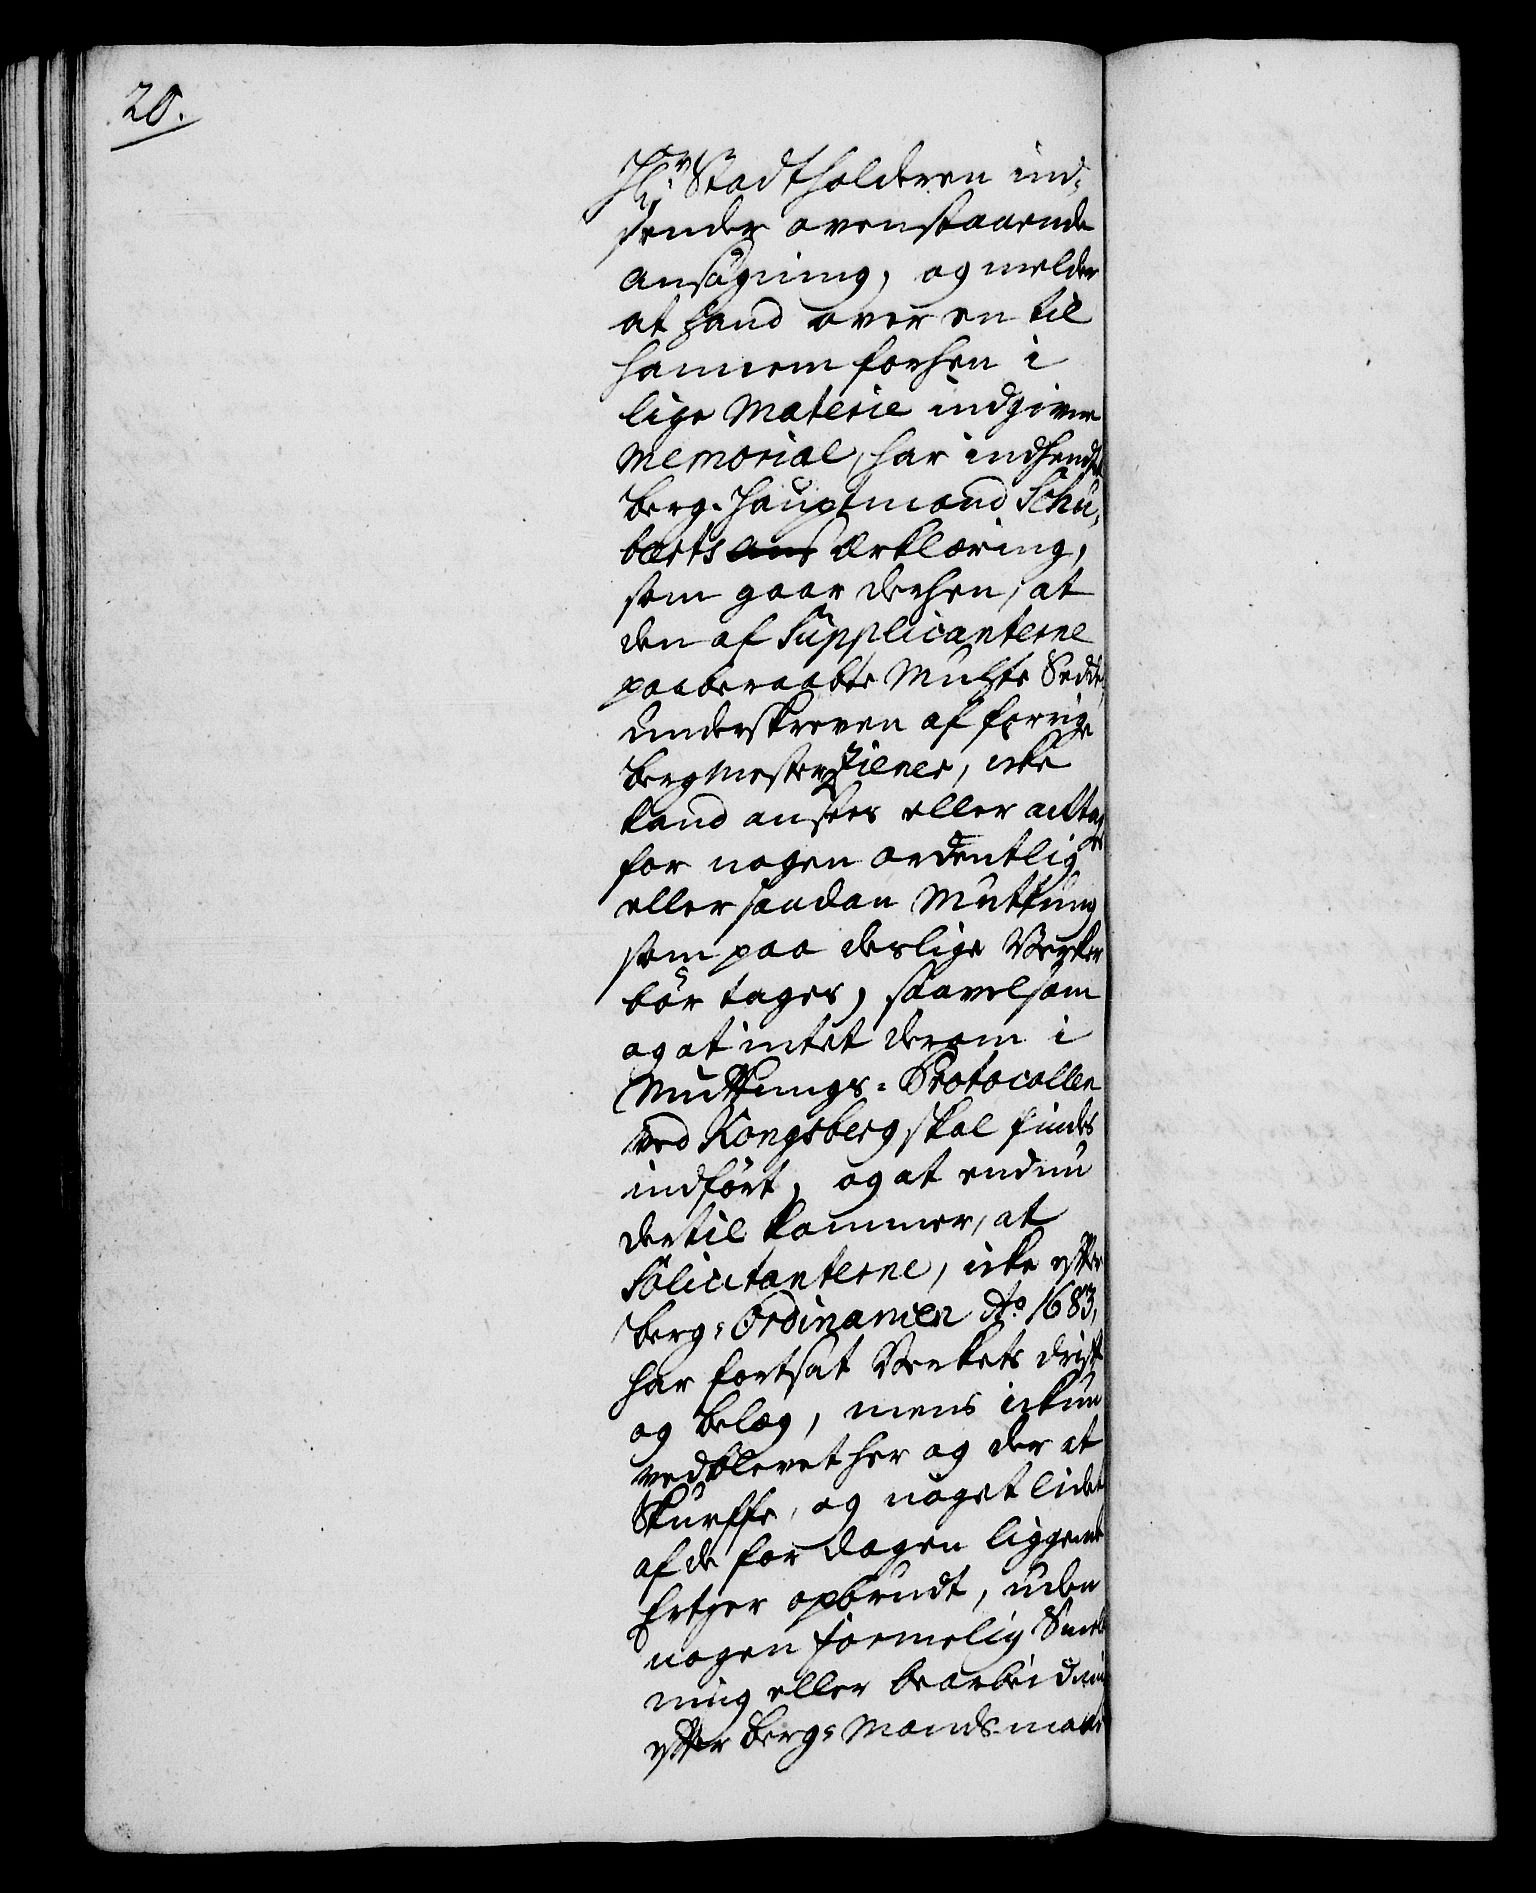 20.
Hr. Stadtholderen ind-
sender ovenstaaende
ansøgning, og melder
at hand over en til
hannem forhen i
lige Materie indgiven
Memorial, har indhendtet
Berg-Hauptmand Schu-
barts ans Erklæring,
som gaar derhen, at
den af Supplicanterne
paaberaabte Muhte Seddel,
Underskreven af forrige
Bergmester Ziener, icke
kand ansees eller antages
for nogen ordentlig
eller saadan Muthung
som paa deslige Verker
bør tages, saavelsom
og at intet derom i
Muthungs-Protocollen
ved Kongsberg skal findes
indført, og at endnu
dertil kommer, at
Solicitanterne, icke efter
Berg-Ordinancen Ao 1683,
har fortsat Verkets drift
og belæg, mens ickun
vedblevet her og der at
Skurffe, og noget lidet
af de for dagen liggende
Ertzer opbrudt, uden
nogen formelig Smelt-
ning eller bearbeidning
efter Berg-Mands-maade